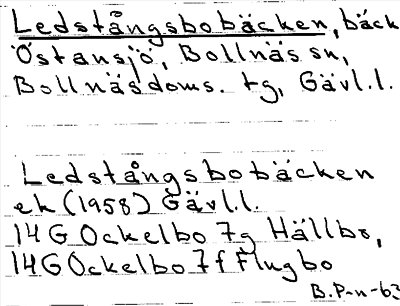 Ledstångsbobäcken, bäck
Östansjö, Bollnäs sn,
Bollnäs doms. tg, Gävl.l.
Ledstångsbobäcken
ek (1958) Gävl.l.
14G Ockelbo 7g Hällbo,
14G Ockelbo 7f Flugbo
B.P-n-63